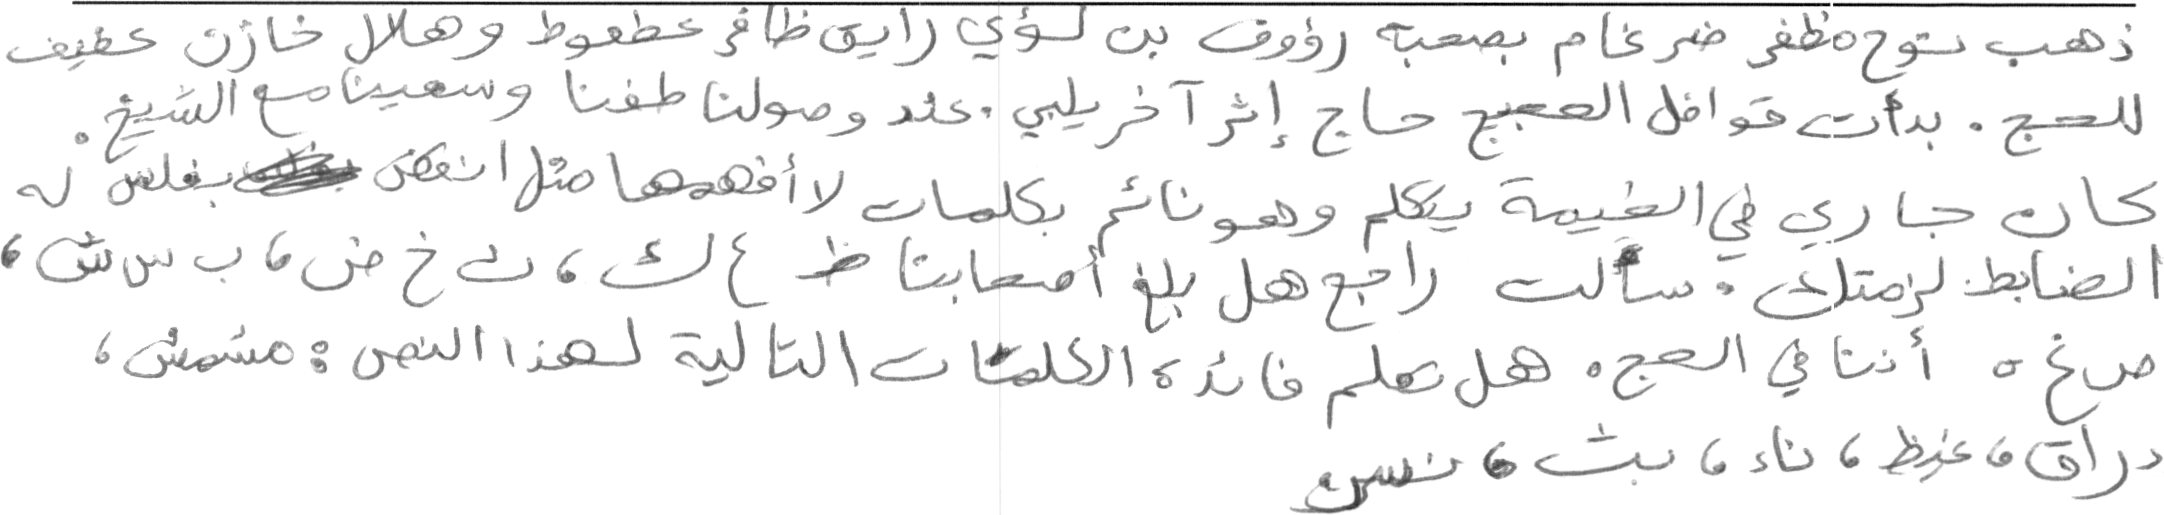 ذهب نوح مظفر ضرغام بصحبة رؤوف بن لؤي رايق ظافر عطعوط وهلال خازن عفيف
للحج. بدأت قوافل الحجيج حاج إثر آخر يلبي. عند وصولنا طفنا وسعينا مع الشيخ.
كان جاري في الخيمة يتكلم وهو نائم بكلمات لا أفهمها مثل انفض بغلس له
الضابط لزمتك. سألت راجح هل بلغ أصحابنا ظ ع ك، ث خ ض، ب س ش،
ص غ ه أننا في الحج. هل تعلم فائدة الكلمات التالية لهذا النص: مشمش،
دراق، غيظ، ناء، بث،